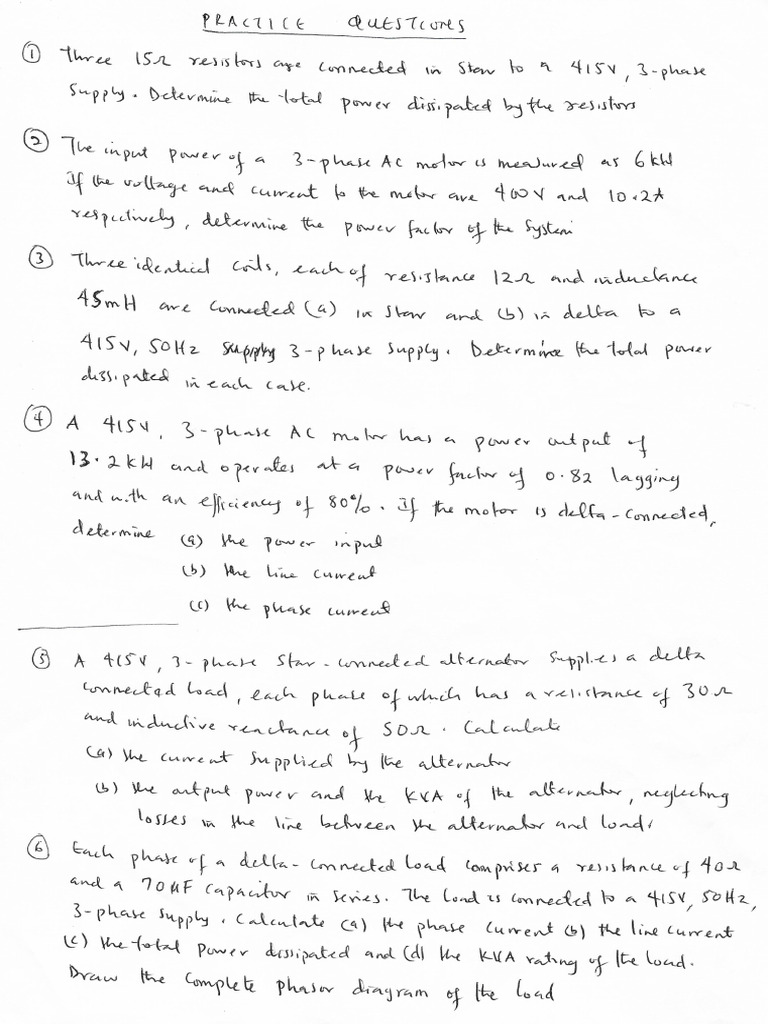 PRACTICE QUESTIONS
① Three 15Ω resistors are connected in Star to a 415V, 3-phase
Supply. Determine the total power dissipated by the resistors
② The input power of a 3-phase AC motor is measured as 6kW
If the voltage and current to the motor are 400V and 10.2A
respectively, determine the power factor of the system
③ Three identical coils, each of resistance 12Ω and inductance
45mH are connected (a) in star and (b) in delta to a
415V, 50Hz supply 3-phase supply. Determine the total power
dissipated in each case.
④ A 415V, 3-phase AC motor has a power output of
13.2kW and operates at a power factor of 0.82 lagging
and with an efficiency of 80%. If the motor is delta-connected,
determine (a) the power input
(b) the line current
(c) the phase current
⑤ A 415V, 3-phase Star-connected alternator supplies a delta
connected load, each phase of which has a resistance of 30Ω
and inductive reactance of 50Ω. Calculate
(a) the current supplied by the alternator
(b) the output power and the KVA of the alternator, neglecting
losses in the line between the alternator and load.
⑥ Each phase of a delta-connected load comprises a resistance of 40Ω
and a 70μF capacitor in series. The load is connected to a 415V, 50Hz,
3-phase supply. Calculate (a) the phase current (b) the line current
(c) the total power dissipated and (d) the KVA rating of the load.
Draw the complete phasor diagram of the load